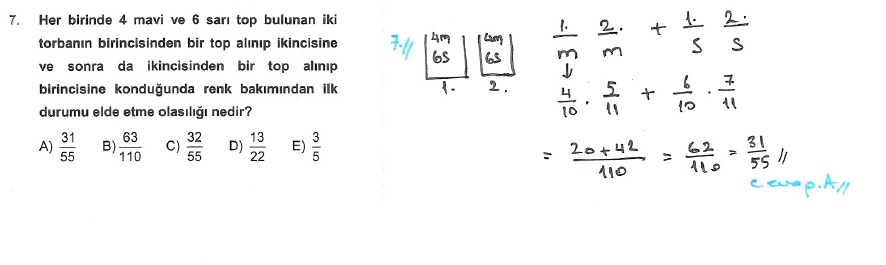 7. Her birinde 4 mavi ve 6 sarı top bulunan iki
torbanın birincisinden bir top alınıp ikincisine
ve sonra da ikincisinden bir top alınıp
birincisine konduğunda renk bakımından ilk
durumu elde etme olasılığı nedir?
A) 31/55 B) 63/110 C) 32/55 D) 13/22 E) 3/5
7.//
4m 4m
6s 6s
1. 2.
1. 2. + 1. 2.
m m s s
4/10 . 5/11 + 6/10 . 7/11
= 20+42/110 = 62/110 = 31/55 //
cevap.A//